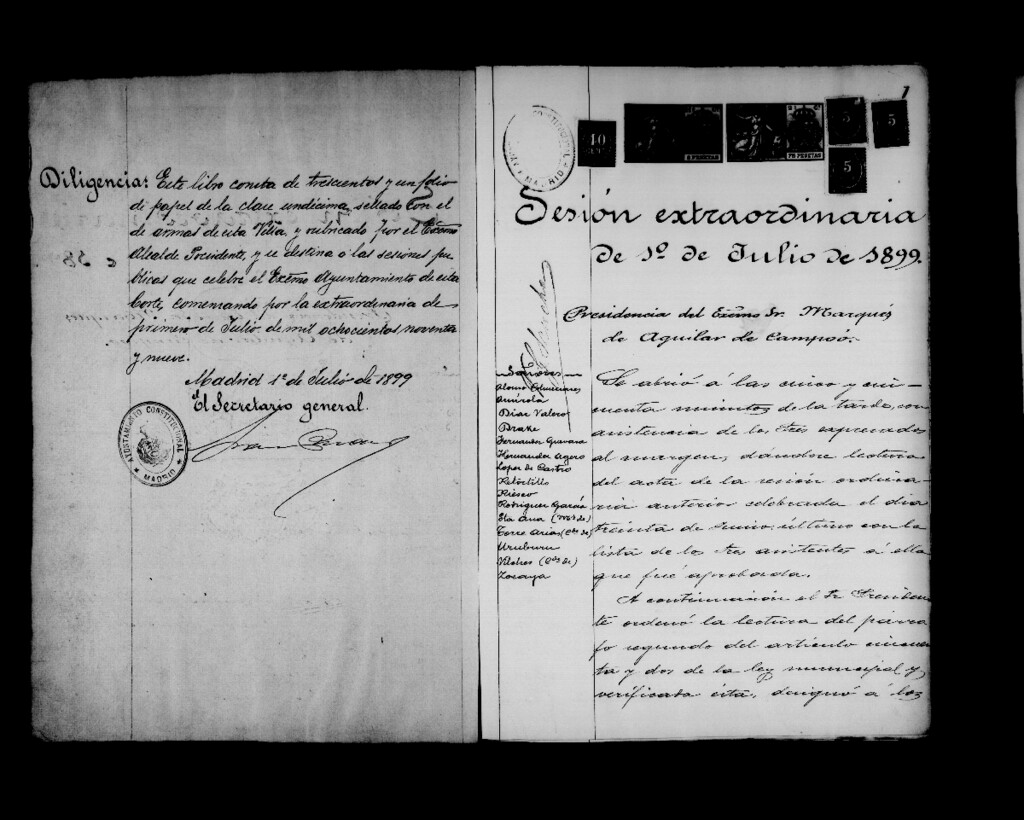 Diligencia: Este libro consta de trescientos y un folio
de papel de la clase undécima, sellado con el
de armas de esta Villa, y rubricado por el Excmo
Alcalde Presidente, y se destina a las sesiones pú-
blicas que celebre el Excmo Ayuntamiento de esta
Corte, comenzando por la extraordinaria de
primero de Julio de mil ochocientos noventa
y nueve.
Madrid 1º de Julio de 1899
El Secretario general.
AYUNTAMIENTO CONSTITUCIONAL
MADRID
1
CONSTITUCIONAL
MADRID
10
PESETAS
PESETAS
5
5
5
Sesión extraordinaria
de 1º de Julio de 1899.
Presidencia del Excmo Sr. Marqués
de Aguilar de Campoó.
Señores
Diaz Valero
Drake
Hernandez Agero
Lopez de Castro
Riesco
Rodriguez García
Sta Ana (Mqs de)
Torre Arias (Cde de)
Uruburu
Vilches (Cde de)
Zozaya
Se abrió á las cinco y cin-
cuenta minutos de la tarde, con
asistencia de los Sres expresados
al margen, dándose lectura
del acta de la sesión ordina-
ria anterior celebrada el dia
treinta de Junio último con la
lista de los Sres asistentes á ella
que fué aprobada.
A continuación el Sr Presiden-
te ordenó la lectura del párra-
fo segundo del artículo cincuen-
ta y dos de la ley municipal y,
verificada ésta, designó á los